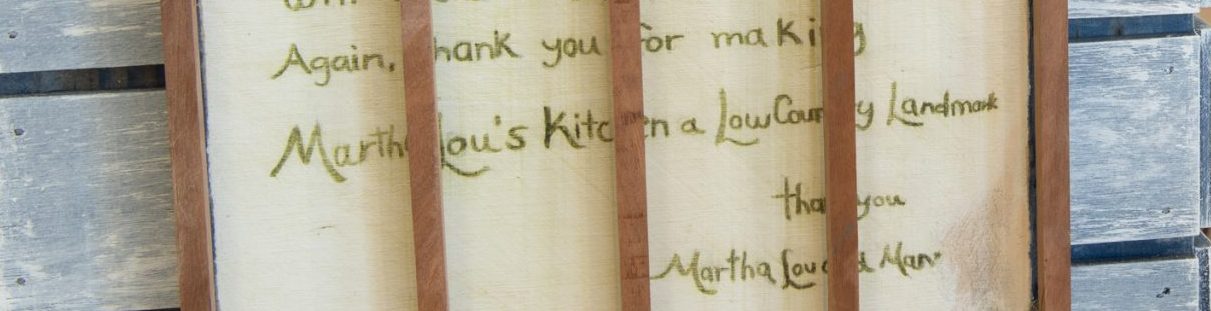 Again, hank you for making
Martha Lou's Kitchen a LowCountry Landmark
thank you
Martha Lou